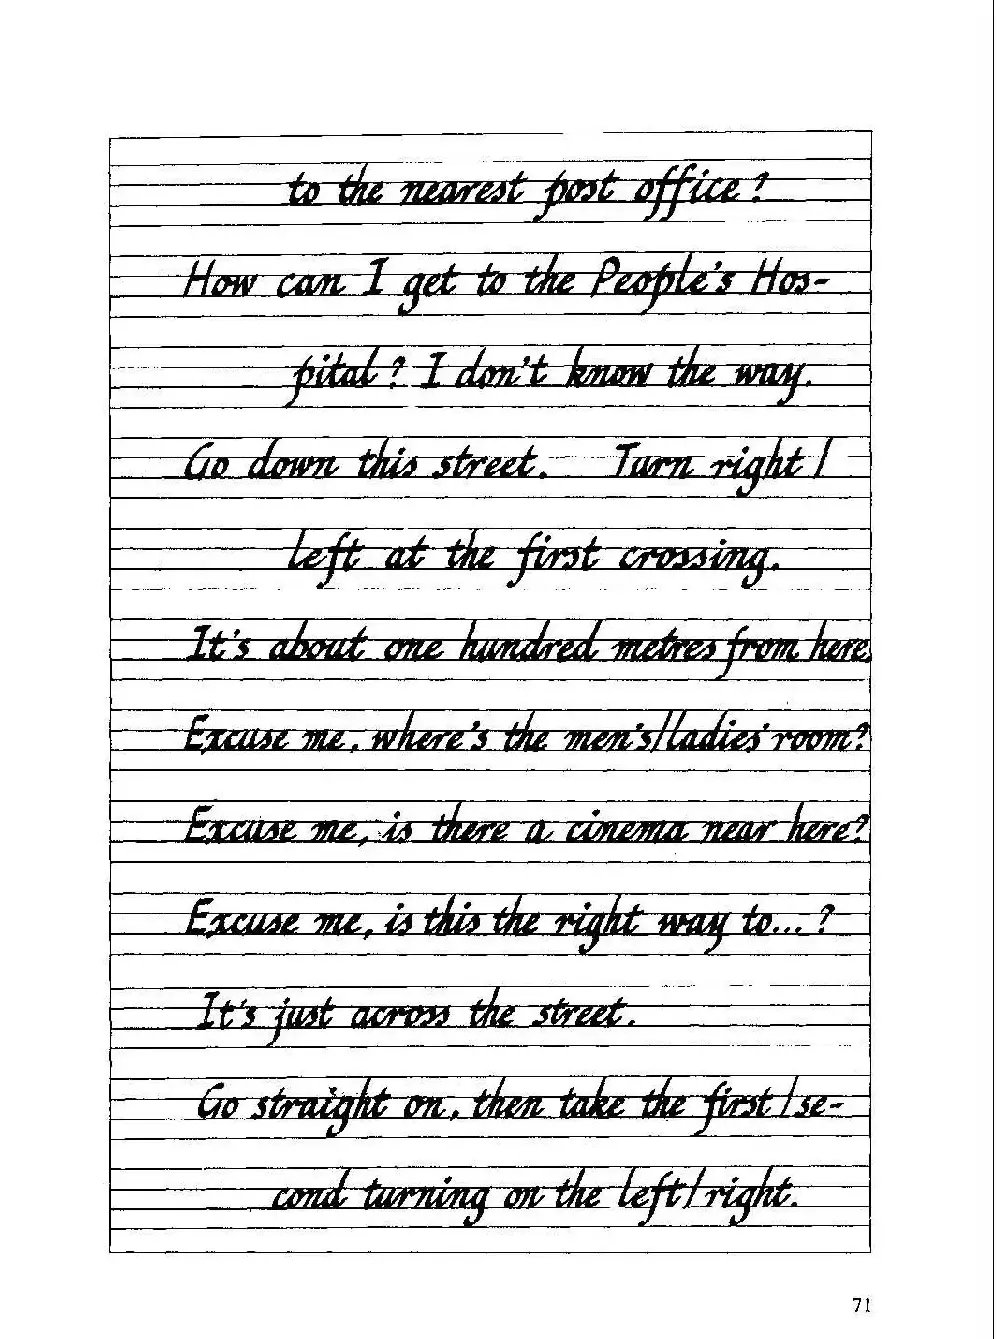 to the nearest post office?
How can I get to the People's Hos-
pital? I don't know the way.
Go down this street. Turn right/
left at the first crossing.
It's about one hundred metres from here.
Excuse me, where's the men's/ladies' room?
Excuse me, is there a cinema near here?
Excuse me, is this the right way to...?
It's just across the street.
Go straight on, then take the first/se-
cond turning on the left/right.
71